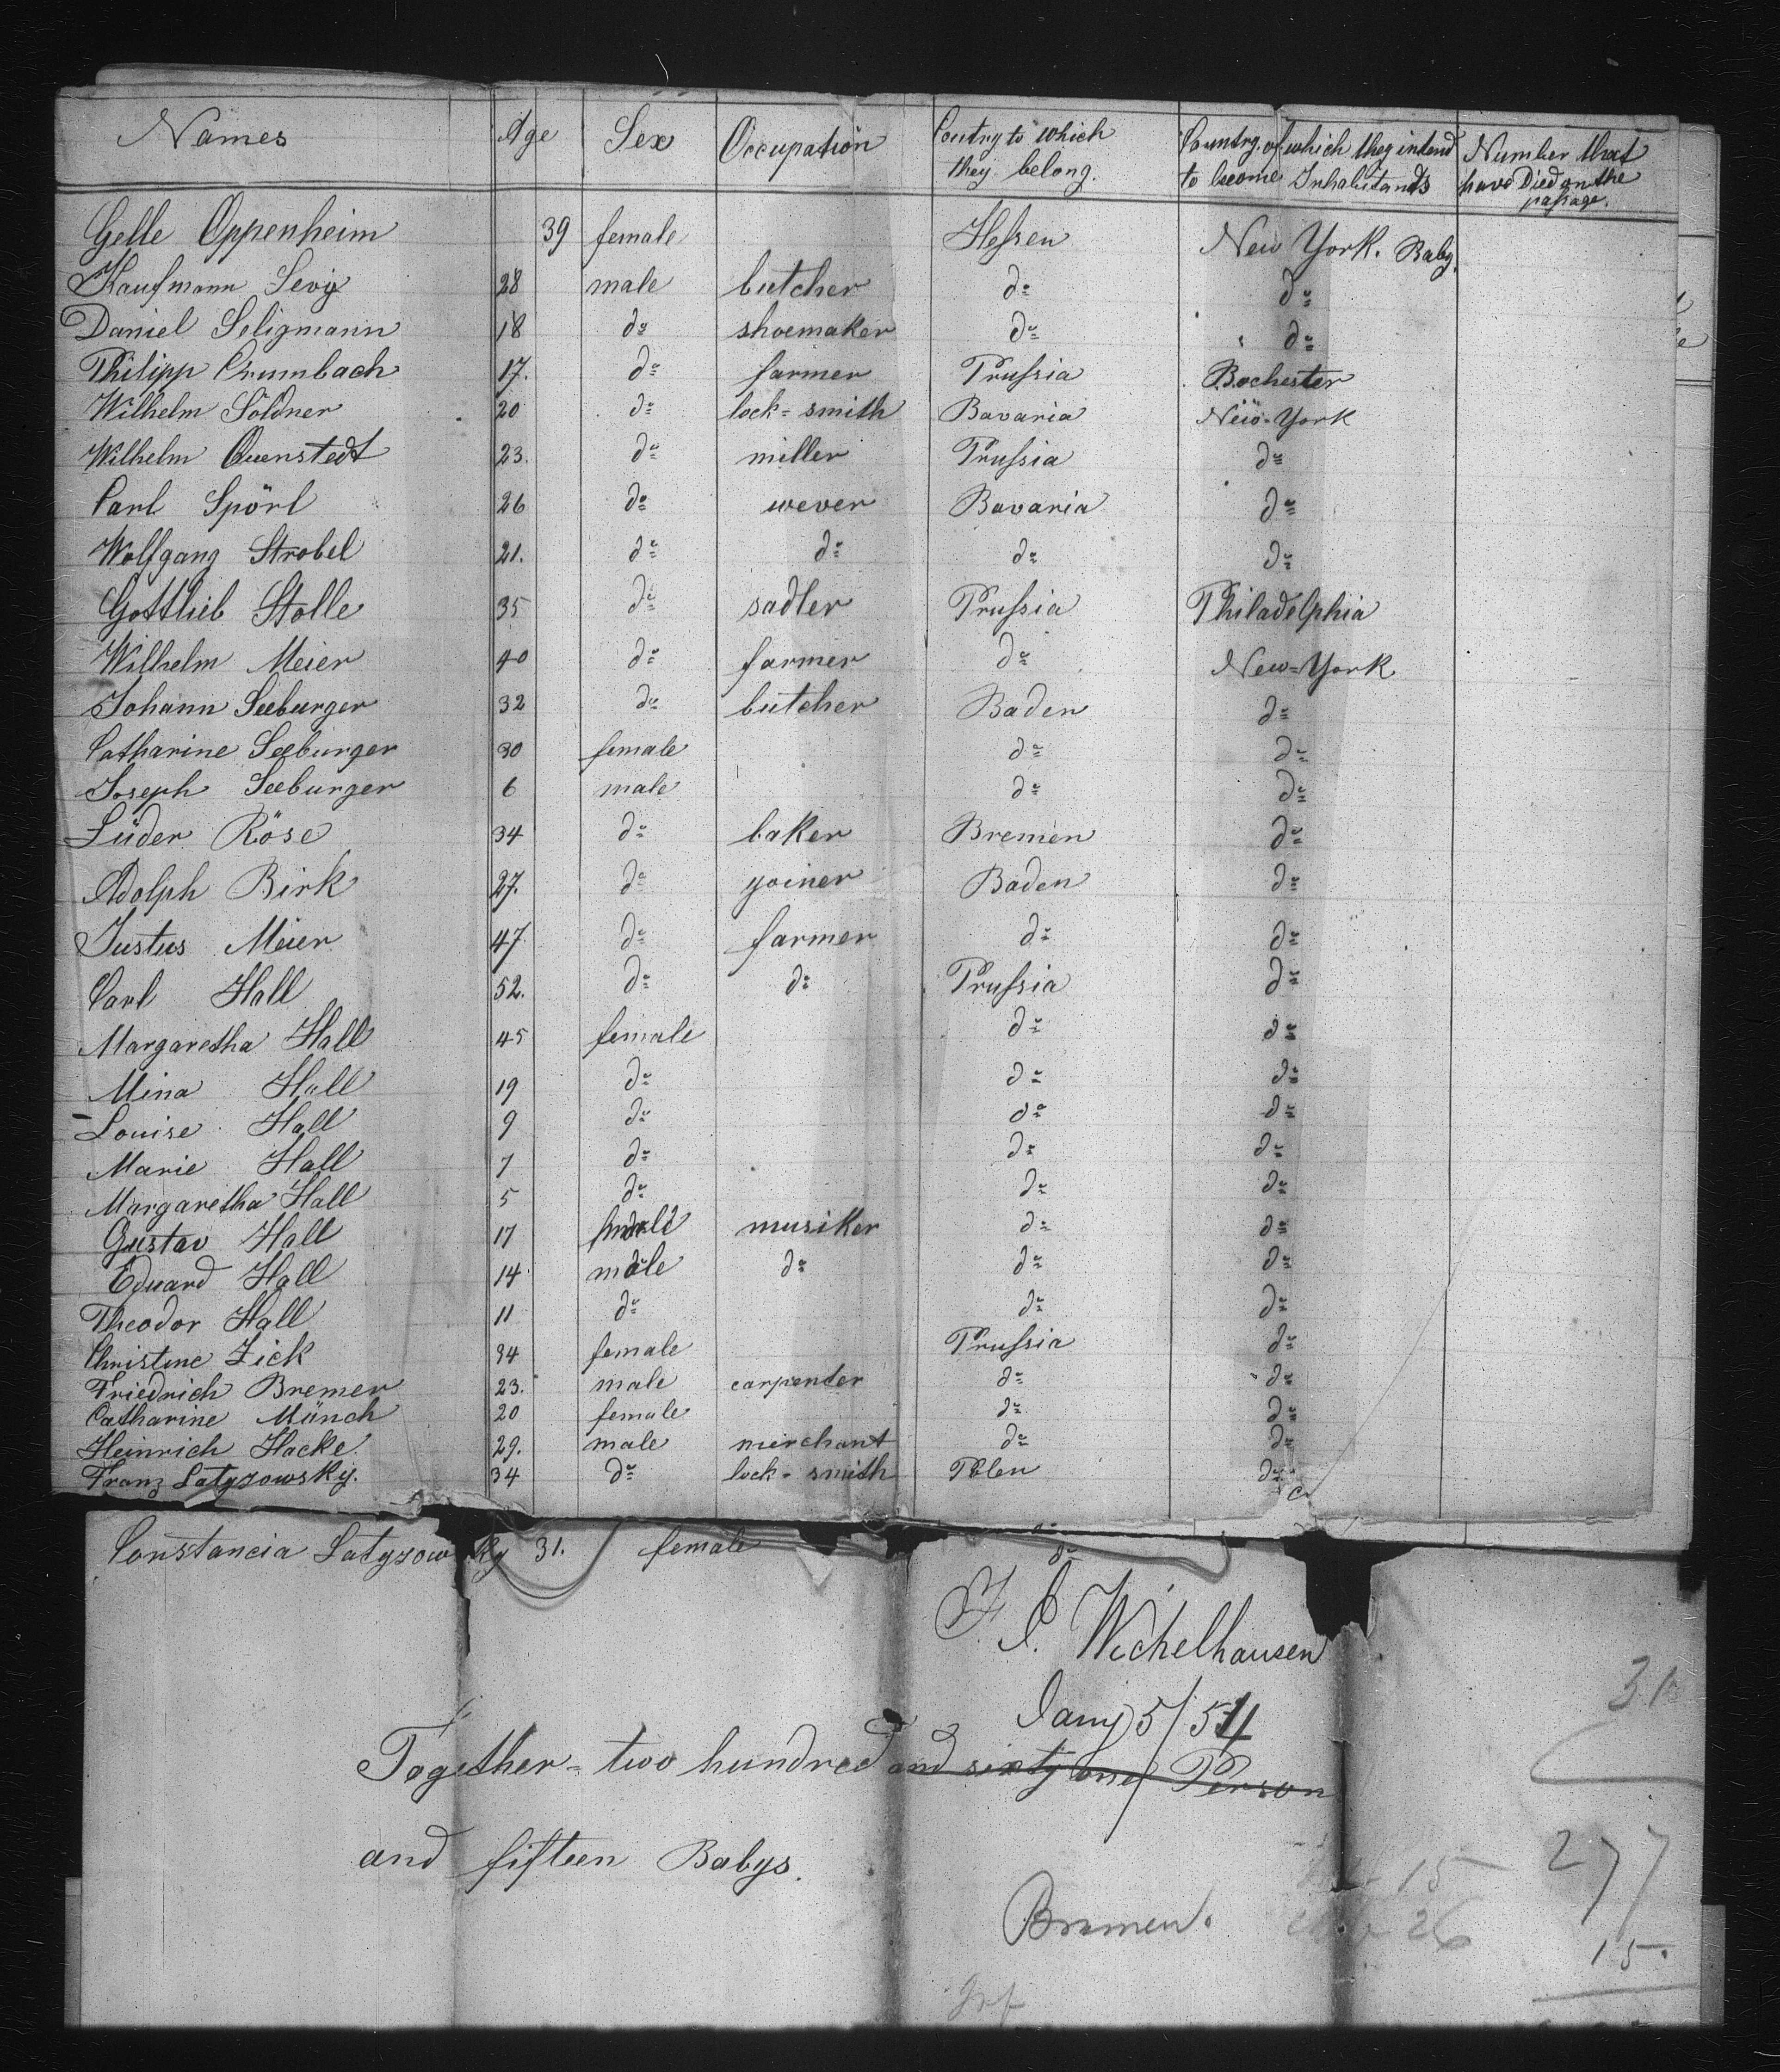 Names Age Sex Occupation Coutry to which they belong. Country of which they intend to become Inhabitands Number that have Died on the passage.
Gelle Oppenheim 39 female Hessen New York. Baby.
Kaufmann Levy 28 male butcher do do
Daniel Seligmann 18 do shoemaker do do
Philipp Crumbach 17. do farmer Prussia Rochester
Wilhelm Söldner 20 do lock=smith Bavaria New-York
Wilhelm Quenstedt 23. do miller Prussia do
Carl Spörl 26 do wever Bavaria do
Wolfgang Strobel 21. do do do do
Gottlieb Stolle 35 do sadler Prussia Philadelphia
Wilhelm Meier 40 do farmer do New=York
Johann Seeburger 32 do butcher Baden do
Catharine Seeburger 30 female do do
Joseph Seeburger 6 male do do
Lüder Röse 34 do baker Bremen do
Adolph Birk 27. do yoiner Baden do
Justus Meier 47. do farmer do do
Carl Hall 52. do do Prussia do
Margaretha Hall 45 female do do
Mina Hall 19 do do do
Louise Hall 9 do do do
Marie Hall 7 do do do
Margaretha Hall 5 do do do
Gustav Hall 17 musiker do do
Eduard Hall 14 male do do do
Theodor Hall 11 do do do
Christine Zick 34 female Prussia do
Friedrich Bremer 23. male carpenter do do
Catharine Münch 20 female do do
Heinrich Hacke. 29. male merchant do do
Franz Latyzowsky. 34 do lock-smith Polen do
Constancia Latyzowsky 31. female do
F. J. Wichelhausen
31
Jany 5/54
Together=two hundred and sixty one Person
and fifteen Babys.
277
15
26
Bremen.
15.